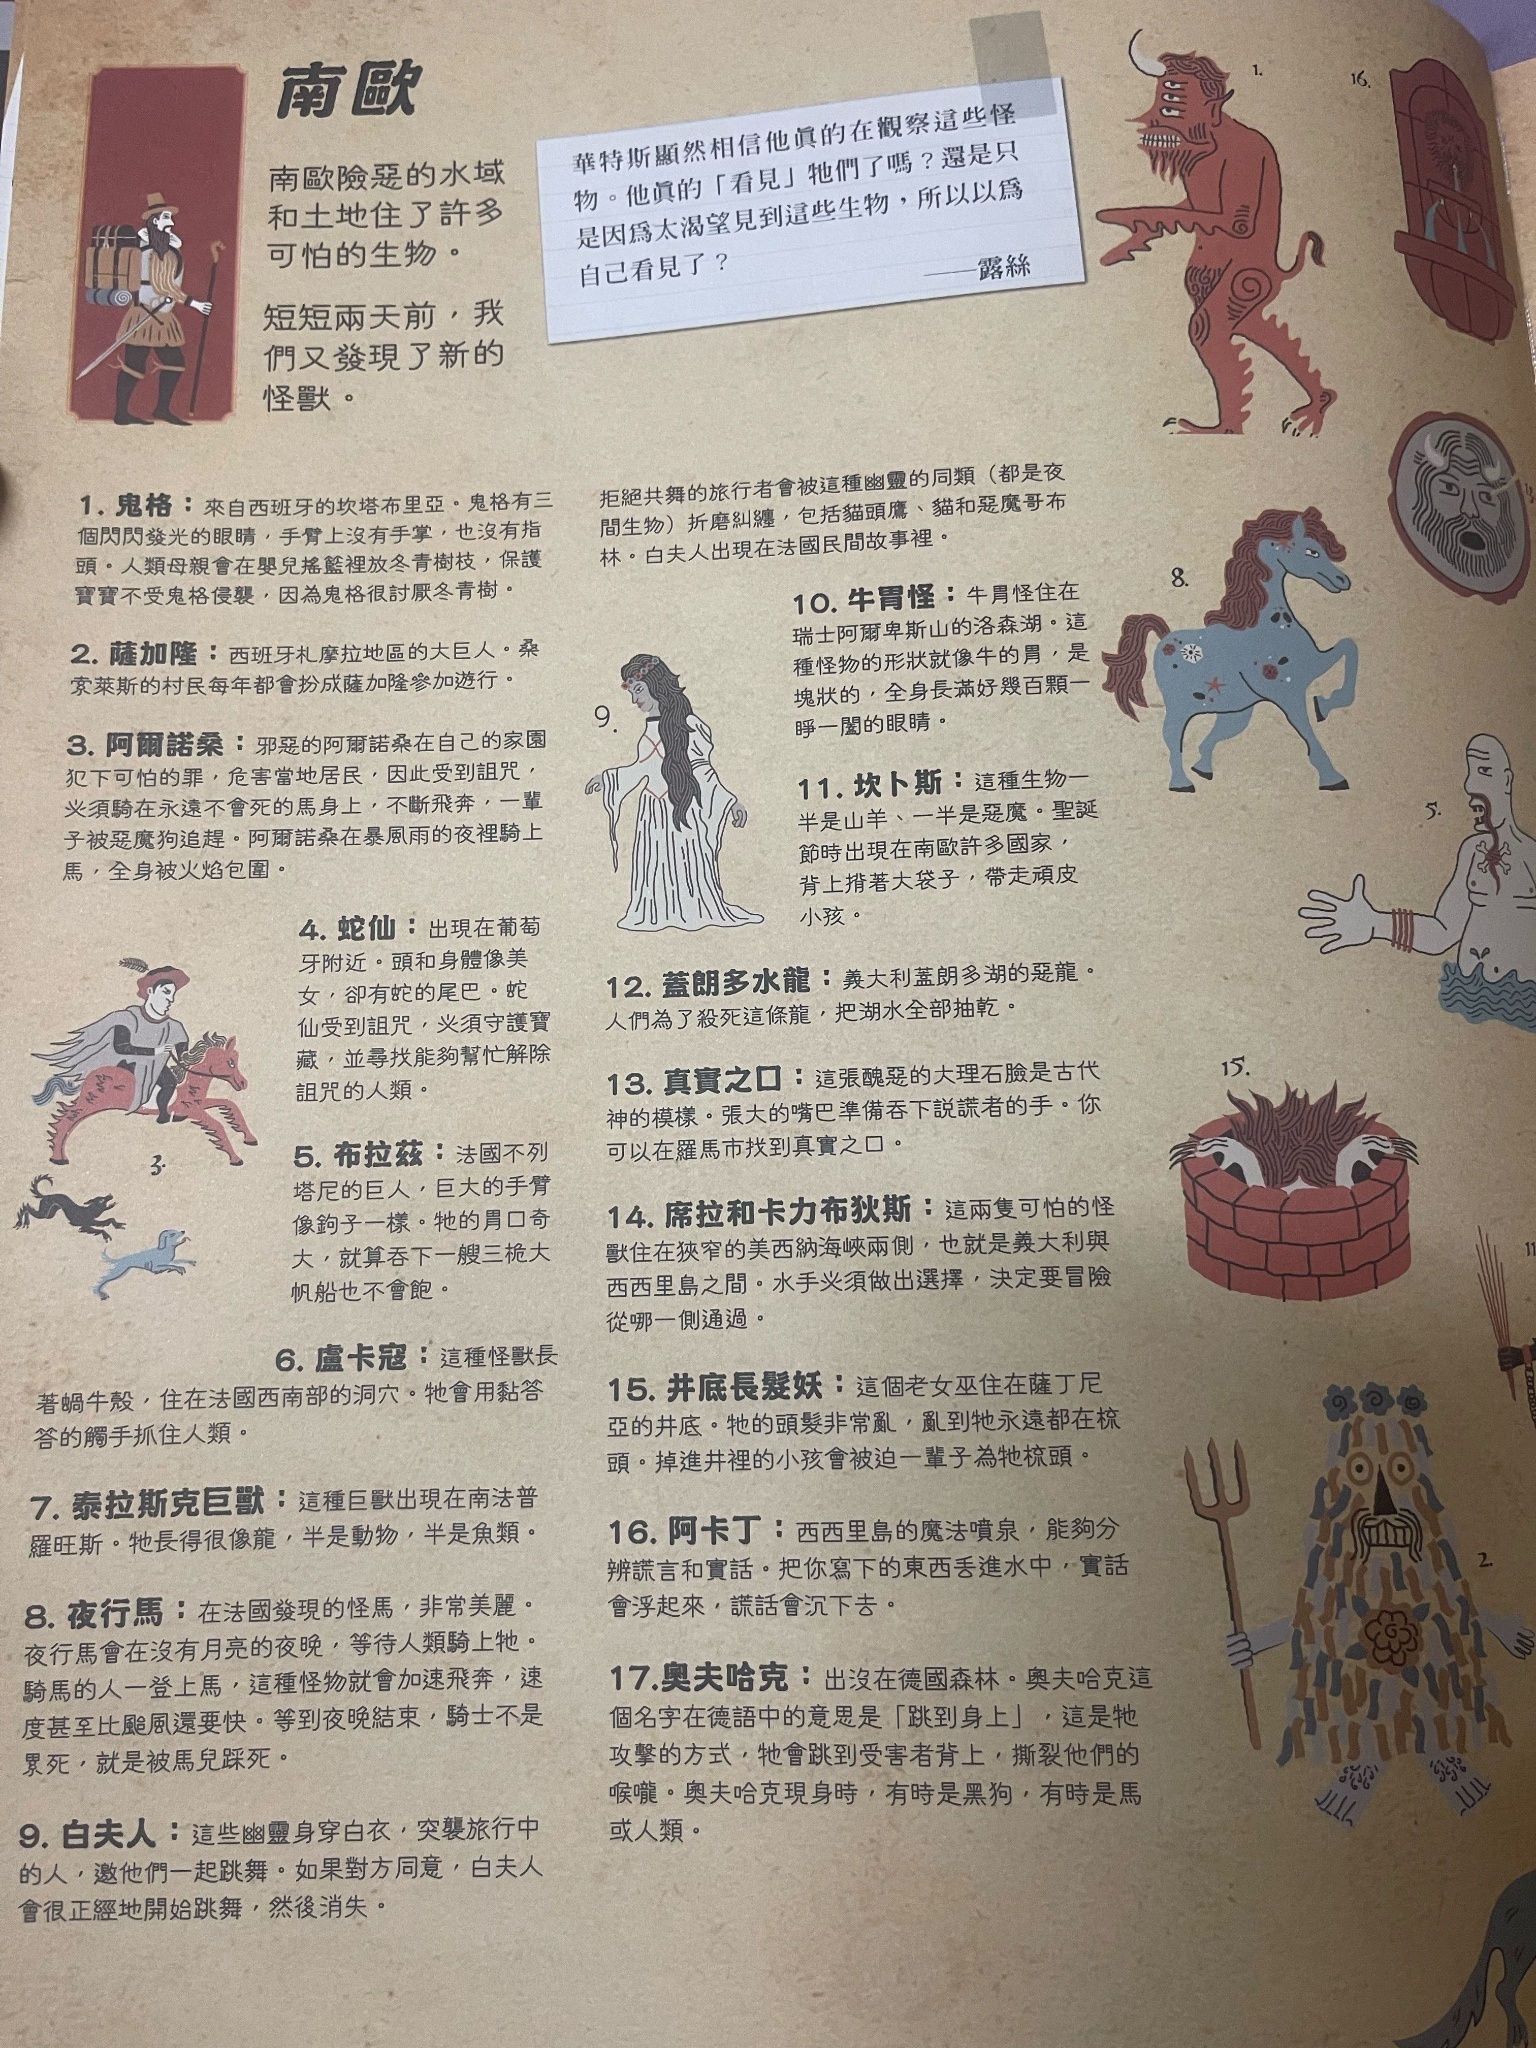 南歐
南歐險惡的水域
和土地住了許多
可怕的生物。
短短兩天前，我
們又發現了新的
怪獸。
華特斯顯然相信他真的在觀察這些怪
物。他真的「看見」牠們了嗎？還是只
是因為太渴望見到這些生物，所以以為
自己看見了？
——露絲
1. 鬼格：來自西班牙的坎塔布里亞。鬼格有三
個閃閃發光的眼睛，手臂上沒有手掌，也沒有指
頭。人類母親會在嬰兒搖籃裡放冬青樹枝，保護
寶寶不受鬼格侵襲，因為鬼格很討厭冬青樹。
2. 薩加隆：西班牙札摩拉地區的大巨人。桑
索萊斯的村民每年都會扮成薩加隆參加遊行。
3. 阿爾諾桑：邪惡的阿爾諾桑在自己的家園
犯下可怕的罪，危害當地居民，因此受到詛咒，
必須騎在永遠不會死的馬身上，不斷飛奔，一輩
子被惡魔狗追趕。阿爾諾桑在暴風雨的夜裡騎上
馬，全身被火焰包圍。
4. 蛇仙：出現在葡萄
牙附近。頭和身體像美
女，卻有蛇的尾巴。蛇
仙受到詛咒，必須守護寶
藏，並尋找能夠幫忙解除
詛咒的人類。
5. 布拉茲：法國不列
塔尼的巨人，巨大的手臂
像鉤子一樣。牠的胃口奇
大，就算吞下一艘三桅大
帆船也不會飽。
6. 盧卡寇：這種怪獸長
著蝸牛殼，住在法國西南部的洞穴。牠會用黏答
答的觸手抓住人類。
7. 泰拉斯克巨獸：這種巨獸出現在南法普
羅旺斯。牠長得很像龍，半是動物，半是魚類。
8. 夜行馬：在法國發現的怪馬，非常美麗。
夜行馬會在沒有月亮的夜晚，等待人類騎上牠。
騎馬的人一登上馬，這種怪物就會加速飛奔，速
度甚至比颱風還要快。等到夜晚結束，騎士不是
累死，就是被馬兒踩死。
9. 白夫人：這些幽靈身穿白衣，突襲旅行中
的人，邀他們一起跳舞。如果對方同意，白夫人
會很正經地開始跳舞，然後消失。
拒絕共舞的旅行者會被這種幽靈的同類（都是夜
間生物）折磨糾纏，包括貓頭鷹、貓和惡魔哥布
林。白夫人出現在法國民間故事裡。
10. 牛胃怪：牛胃怪住在
瑞士阿爾卑斯山的洛森湖。這
種怪物的形狀就像牛的胃，是
塊狀的，全身長滿好幾百顆一
睜一闔的眼睛。
11. 坎卜斯：這種生物一
半是山羊、一半是惡魔。聖誕
節時出現在南歐許多國家，
背上揹著大袋子，帶走頑皮
小孩。
12. 蓋朗多水龍：義大利蓋朗多湖的惡龍。
人們為了殺死這條龍，把湖水全部抽乾。
13. 真實之口：這張醜惡的大理石臉是古代
神的模樣。張大的嘴巴準備吞下說謊者的手。你
可以在羅馬市找到真實之口。
14. 席拉和卡力布狄斯：這兩隻可怕的怪
獸住在狹窄的美西納海峽兩側，也就是義大利與
西西里島之間。水手必須做出選擇，決定要冒險
從哪一側通過。
15. 井底長髮妖：這個老女巫住在薩丁尼
亞的井底。牠的頭髮非常亂，亂到牠永遠都在梳
頭。掉進井裡的小孩會被迫一輩子為牠梳頭。
16. 阿卡丁：西西里島的魔法噴泉，能夠分
辨謊言和實話。把你寫下的東西丟進水中，實話
會浮起來，謊話會沉下去。
17.奧夫哈克：出沒在德國森林。奧夫哈克這
個名字在德語中的意思是「跳到身上」，這是牠
攻擊的方式，牠會跳到受害者背上，撕裂他們的
喉嚨。奧夫哈克現身時，有時是黑狗，有時是馬
或人類。
1.
16.
8.
9.
5.
3.
15.
11
2.